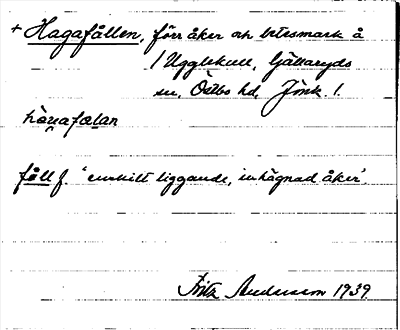 + Hagafållen, förr åker och betesmark å
/ Ugglekull, Ljüttaryds
sn, Östbo hd, Jönk. l.
fåll f. 'enskilt liggande, inhägnad åker'.
Fritz Andersson 1939